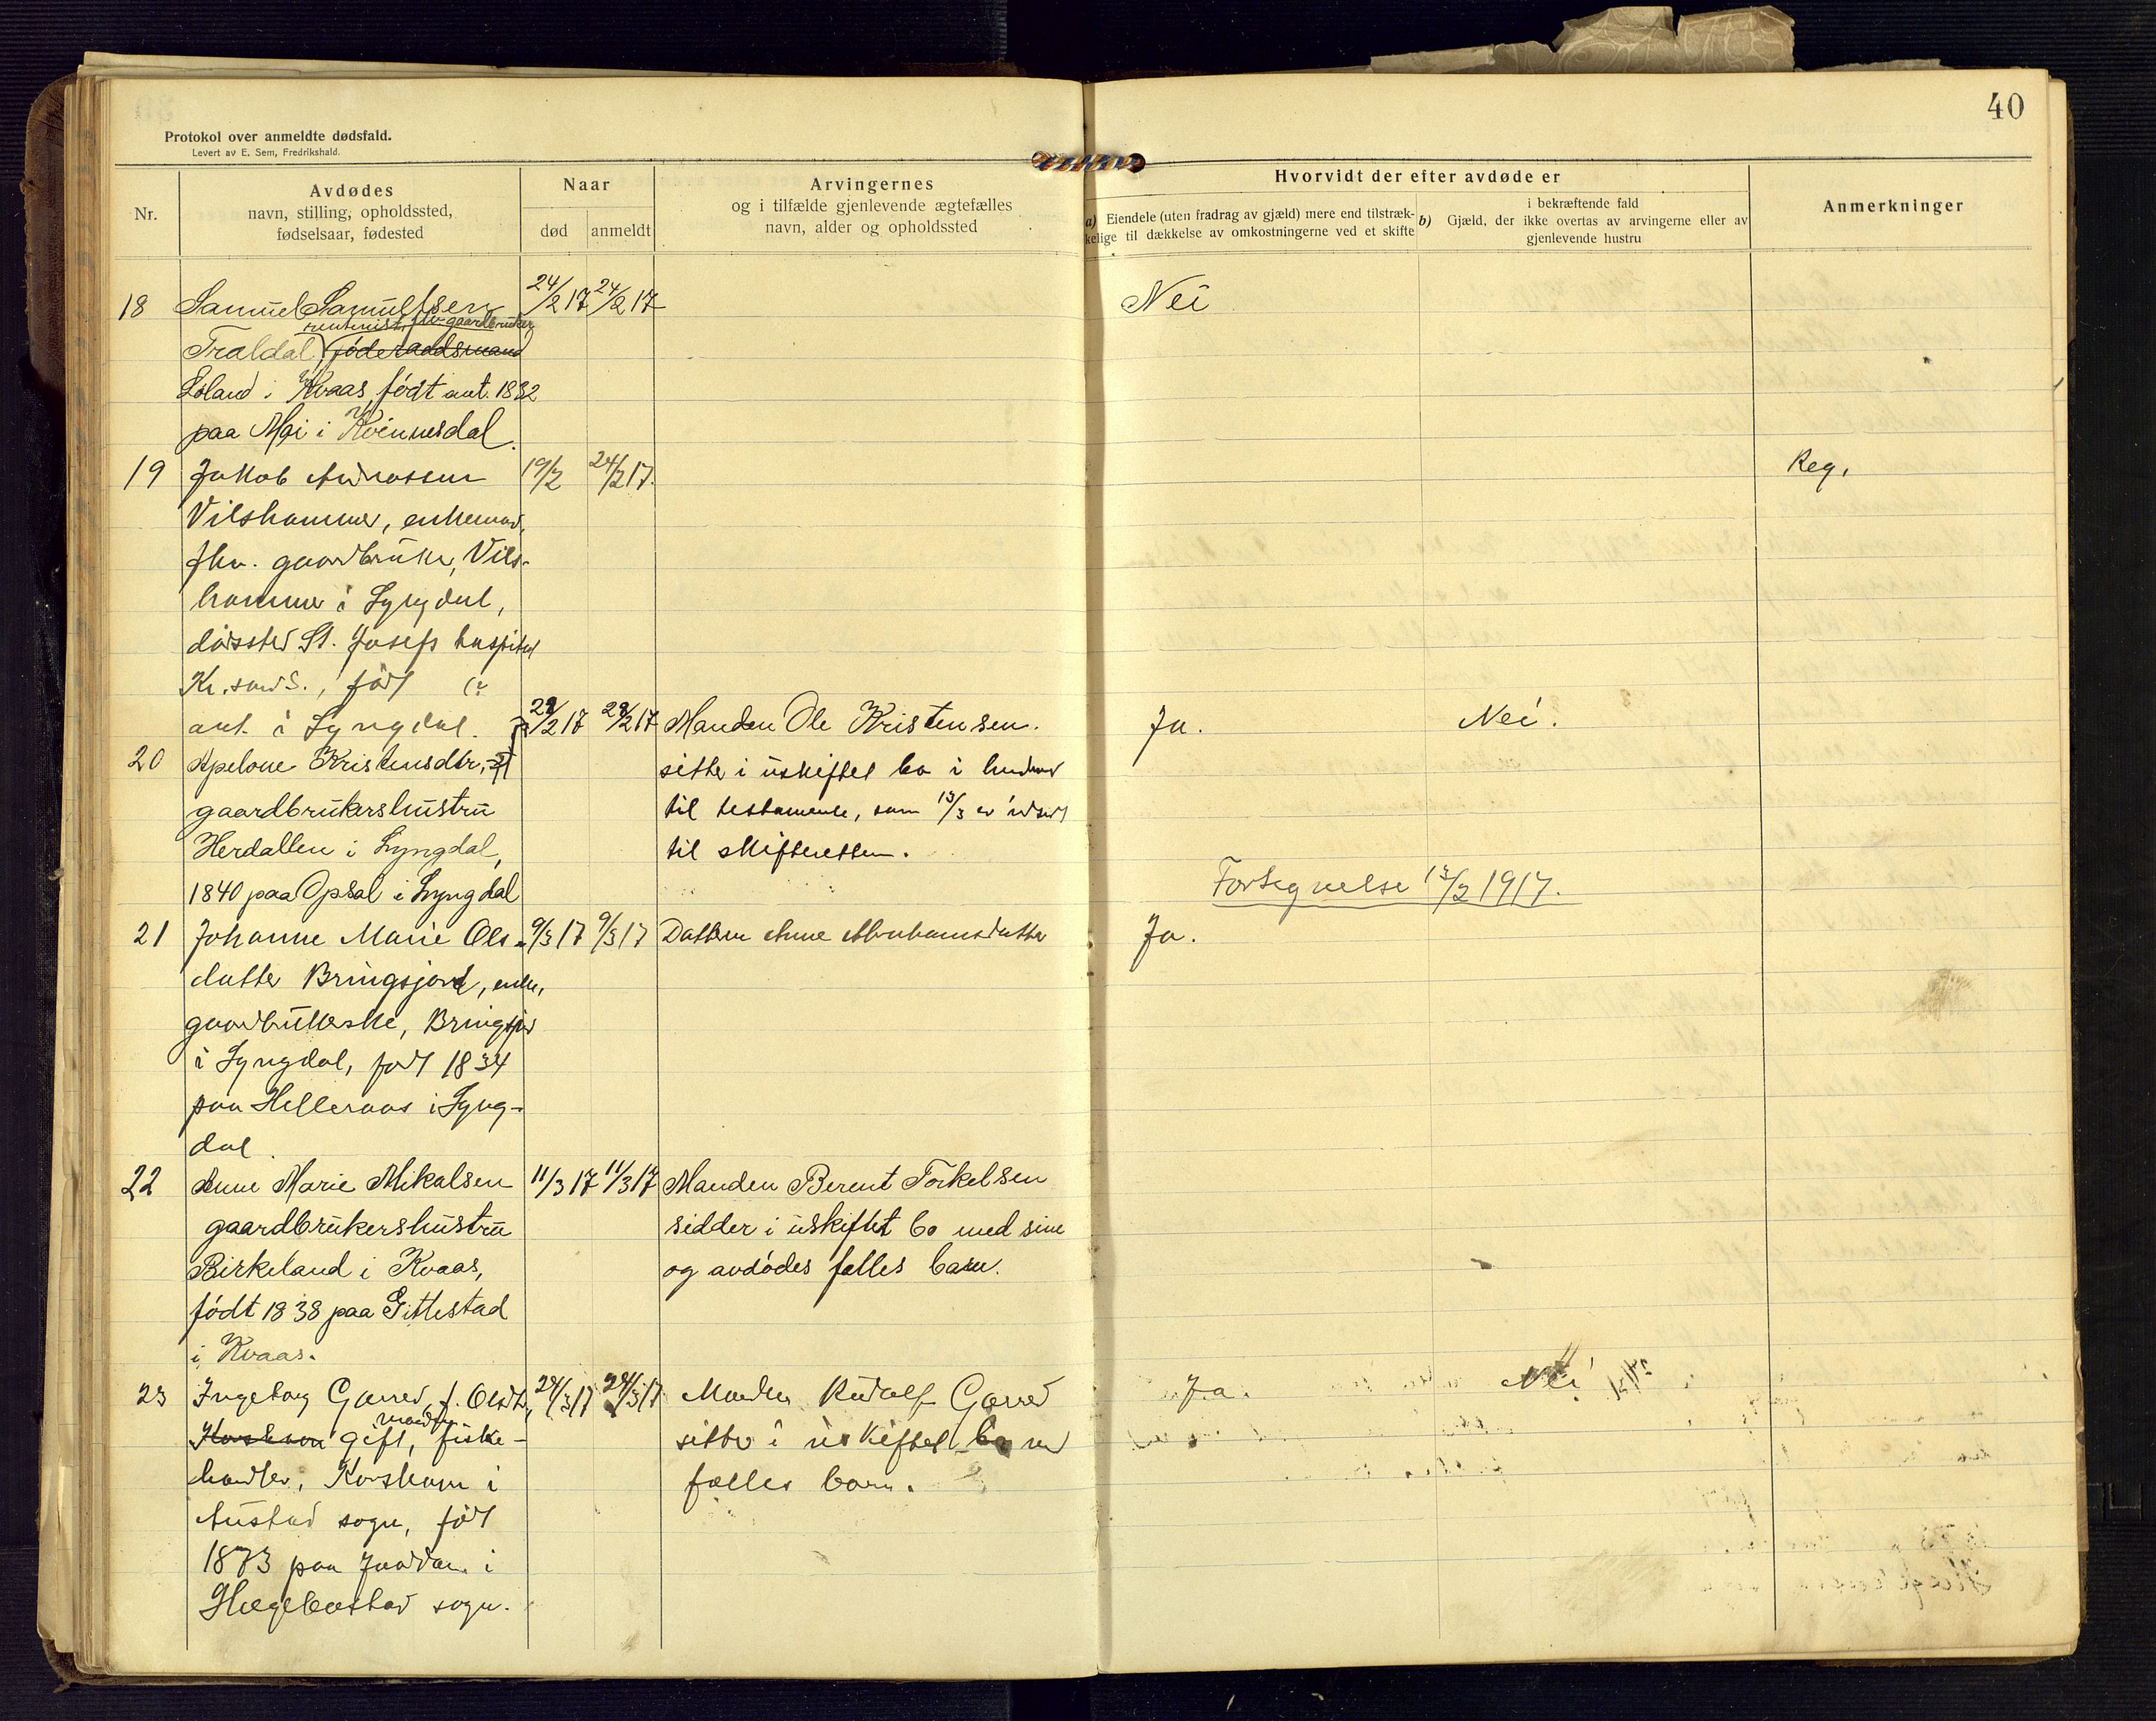 40
Protokol over anmeldte dødsfald.
Levert av E. Sem, Fredrikshald.
Nr.
Avdødes
navn, stilling, opholdssted,
fødselsaar, fødested
Naar
død
anmeldt
Arvingernes
og i tilfælde gjenlevende ægtefælles
navn, alder og opholdssted
Hvorvidt der efter avdøde er
a) Eiendele (uten fradrag av gjæld) mere end tilstræk-
kelige til dækkelse av omkostningerne ved et skifte
i bekræftende fald
b) Gjæld, der ikke overtas av arvingerne eller av
gjenlevende hustru
Anmerkninger
18 Samuel Samuelsen 24/2 17 24/2 17 Nei
rentenist, fhv gaardbruker
Traldal, føderaadsmand
Løland i Kvaas, født ant. 1832
paa Moi i Kvinnesdal.
19 Jakob Andreassen 19/2 24/2 17. Reg.
Vilshammer, enkemand,
fhv. gaardbruker, Vils-
hammer i Lyngdal,
dødssted St. Josefs hospital
Kr.sand S., født
ant. i Lyngdal.
20 Apelone Kristensdtr, 28/2 17 28/2 17 Manden Ole Kristensen. Ja. Nei.
gaardbrukershustru sitter i uskiftet bo i henhold
Herdallen i Lyngdal, til testamente, som 13/3 er indsendt
1840 paa Opsal i Lyngdal til skifteretten.
Forsegnelse 13/3 1917.
21 Johanne Marie Ols- 9/3 17 9/3 17 Datteren Anne Abrahamsdatter Ja.
datter Bringsjord, enke,
gaardbrukerske, Bringsjord
i Lyngdal, født 1834
paa Helleraas i Lyng-
dal.
22 Anne Marie Mikalsen 11/3 17 11/3 17 Manden Berent Torkelsen
gaardbrukershustru sidder i uskiftet bo med sine
Birkeland i Kvaas, og avdødes fælles barn.
født 1838 paa Gittlestad
i Kvaas.
23 Ingeborg Garred, f. Olsdtr, 24/3 17 24/3 17 Manden Rudolf Garred Ja. Nei
Korshavn gift, manden fiske- sitter i uskiftet bo med
handler, Korshavn i fælles barn.
Austad sogn, født
1873 paa i
Hægebostad sogn.